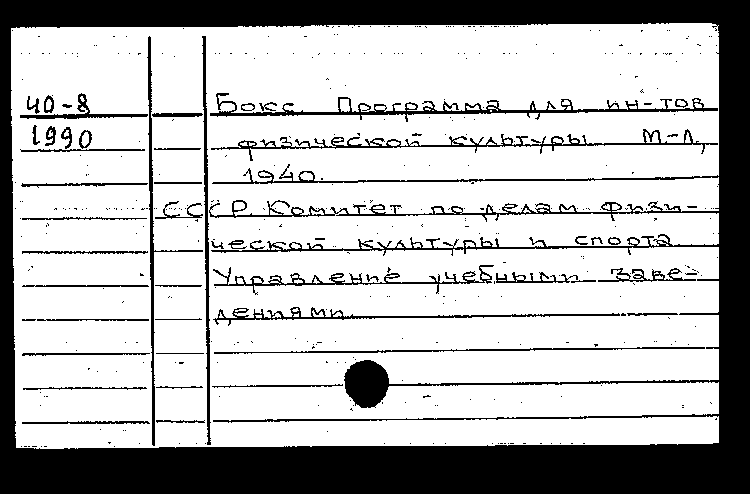 40-8 Бокс. Программа для ин-тов
1990 физической культуры. М.-Л.,
1940.
СССР. Комитет по делам физи-
ческой культуры и спорта
Управление учебными заве-
дениями.